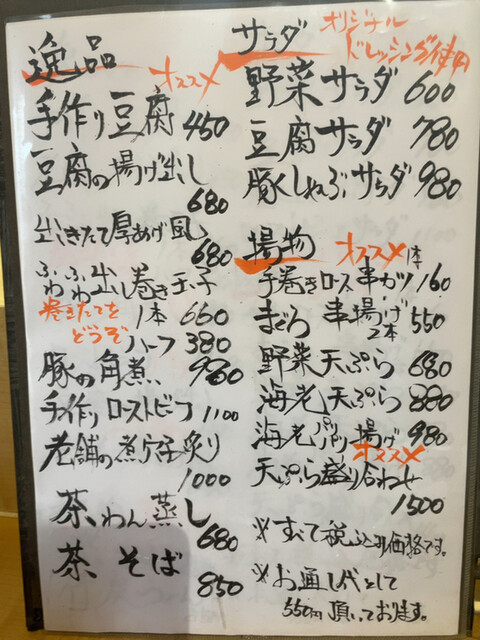 逸品
オススメ
手作り豆腐 450
豆腐の揚げ出し
680
出きたて厚あげ風
680
ふわふわ出し巻き玉子
巻きたてを
どうぞ
1本 660
ハーフ 380
豚の角煮 980
手作りローストビーフ 1100
老舗の煮穴子炙り
1000
茶わん蒸し
680
茶そば
850
サラダ
オリジナル
ドレッシング使用
野菜サラダ 600
豆腐サラダ 780
豚しゃぶサラダ 980
揚物
オススメ
手巻きロース串カツ 1本 160
まぐろ串揚げ 2本 550
野菜天ぷら 680
海老天ぷら 880
海老パリパリ揚げ 980
オススメ
天ぷら盛り合わせ
1500
※すべて税込み価格です。
※お通し代として
550円頂いております。